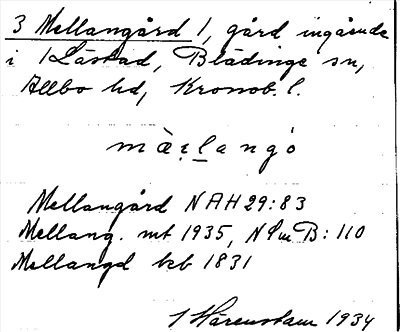 3 Mellangård 1, gård ingående
i 1 Låstad, Blädinge sn,
Allbo hd, Kronob. l.
Mellangård NAH 29:83
Mellang. mt 1935, NSmB: 110
Mellangd keb 1831
Härenstam 1934